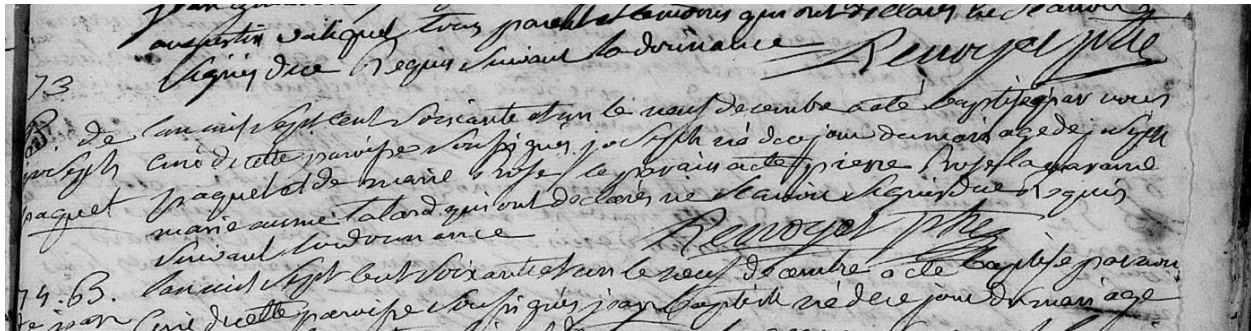 augustin valiquet tous parents et temoins qui ont declarés ne scavoir
signer de ce Requis suivant l'ordonnance Renoyet ptre
73
Bap. de joseph paquet
l'an mil sept cent soixante et un le neuf decembre a eté baptisé par nous
curé de cette paroisse soussigués joseph né de ce jour du mariage de joseph
paquet et de marie Rose le parain a eté pierre Rose la maraine
marie anne talard qui ont declarés ne scavoir signer de ce Requis
suivant l'ordonnance Renoyet ptre
74. 63.
de jean
l'an mil sept cent soixante et un le neuf decembre a eté baptisé par nous
Curé de cette paroisse soussigués jean baptiste né de ce jour du mariage